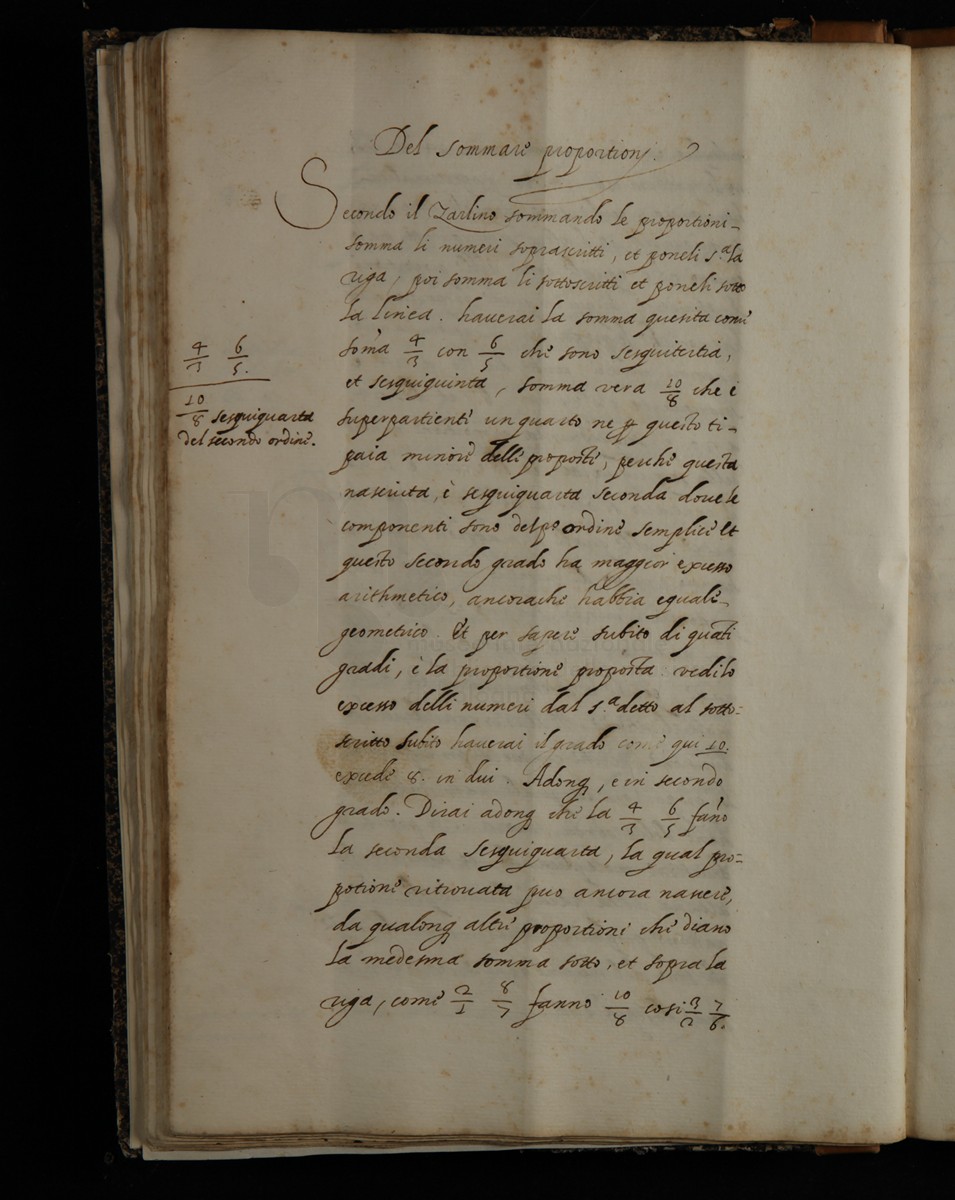 Del sommare proportioni.
Secondo il Zarlino sommando le proportioni
somma li numeri soprascritti, et poneli s.ª la
riga, poi somma li sottoscritti et poneli sotto
la linea. hauerai la somma quesita come
4/3 6/5.
soma 4/3 con 6/5 che sono sesquitertia,
et sesquiquinta, somma vera 10/8 che è
10/8 sesquiquarta
del secondo ordine.
superpartiente un quarto ne p questo ti
paia minore delle proposte, perche questa
nasciuta, è sesquiquarta seconda doue le
componenti sono del po ordine semplice Et
questo secondo grado ha maggior excesso
arithmetico, ancorache habbia equale
geometrico. Et per sapere subito di quati
gradi, è la proportione proposta vedi lo
excesso delli numeri dal s.ª detto al sotto=
scritto subito hauerai il grado come qui 10.
excede 8. in dui. Adonq, e in secondo
grado. Dirai adonq che la 4/3 6/5 fano
la seconda sesquiquarta, la qual pro=
potione ritrouata puo ancora nascere,
da qualonq altre proportioni che diano
la medesma somma sotto, et sopra la
riga, come 2/1 8/7 fanno 10/8 cosi 3/2 7/6.